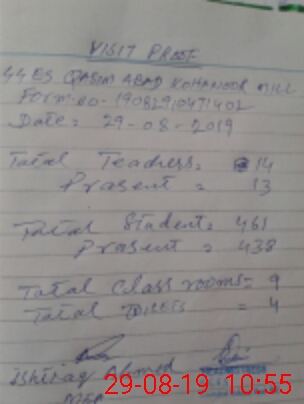 VISIT PROOF
44 ES QASIM ABAD KOHANOOR MILL
Form-no- 19082910471402
Date: 29-08-2019
Total Teachers: 14
Prasent = 13
Total Students: 461
Prasent = 438
Total Class rooms= 9
Total Toilets = 4
Ishtiaq Ahmed
29-08-19 10:55